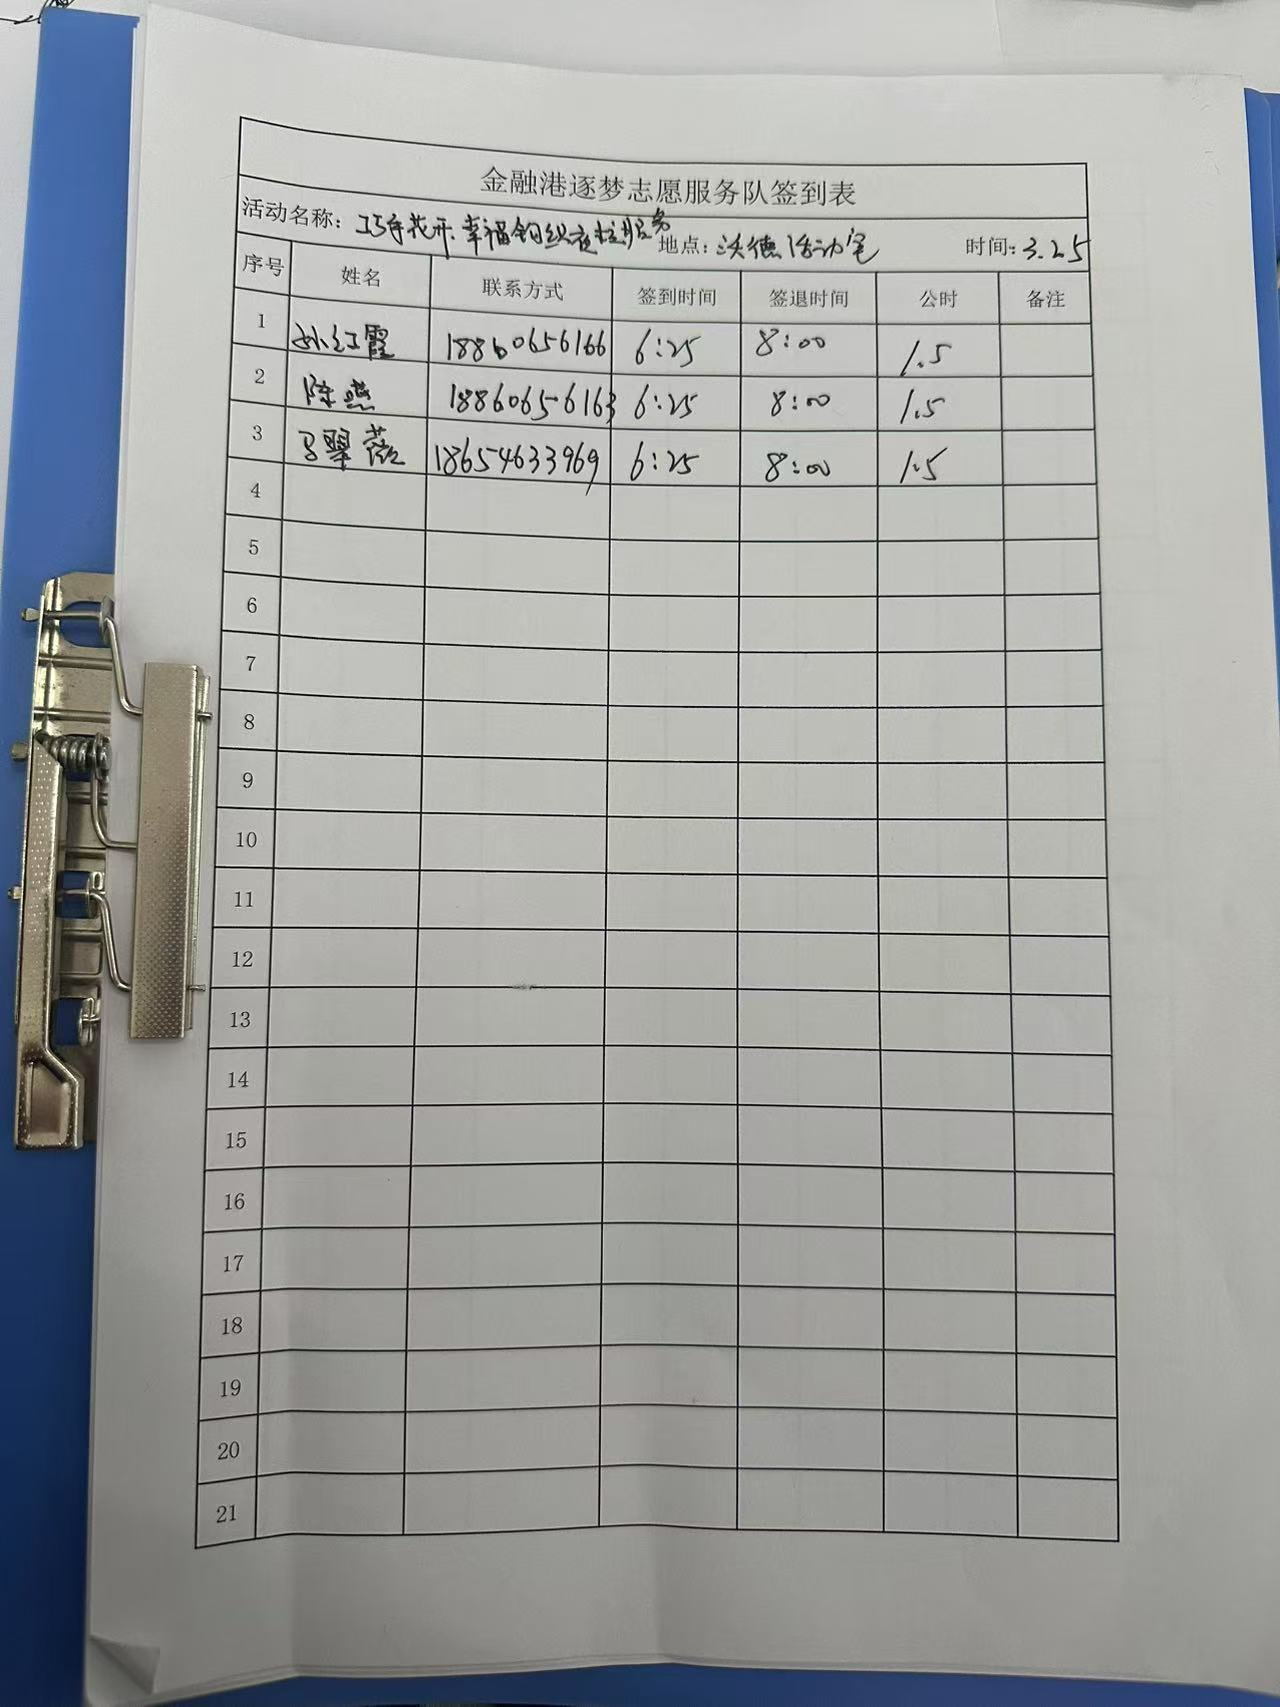 金融港逐梦志愿服务队签到表
活动名称：巧手花开.幸福钩织夜校服务 地点：沃德活动室 时间：3.25
序号 姓名 联系方式 签到时间 签退时间 公时 备注
1 孙红霞 18860656166 6:25 8:00 1.5
2 陈燕 18860656163 6:25 8:00 1.5
3 翠 18654633969 6:25 8:00 1.5
4
5
6
7
8
9
10
11
12
13
14
15
16
17
18
19
20
21